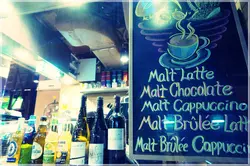 Malt Latte
Malt Chocolate
Malt Cappuccino
Malt Brûlée Latt
Malt Brûlée Capucci